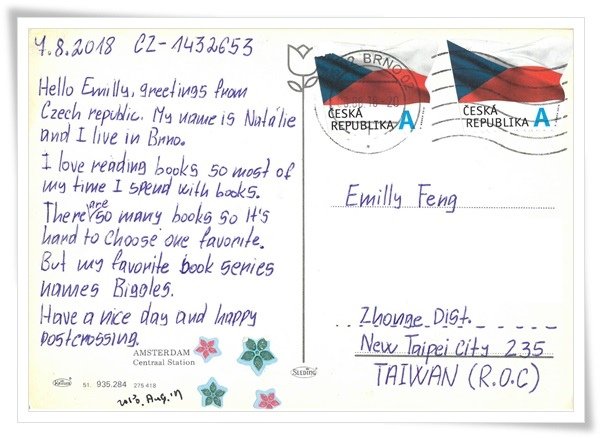 7.8.2018 CZ-1432653
Hello Emilly, greetings from
Czech republic. My name is Natálie
and I live in Brno.
I love reading books so most of
my time I spend with books.
There are so many books so it's
hard to choose one favorite.
But my favorite book series
names Biggles.
Have a nice day and happy
postcrossing.
AMSTERDAM
Centraal Station
51. 935.284 275 418
BRNO
ČESKÁ
REPUBLIKA A
ČESKÁ
REPUBLIKA A
Emilly Feng
Zhonge Dist.
New Taipei City 235
TAIWAN (R.O.C)